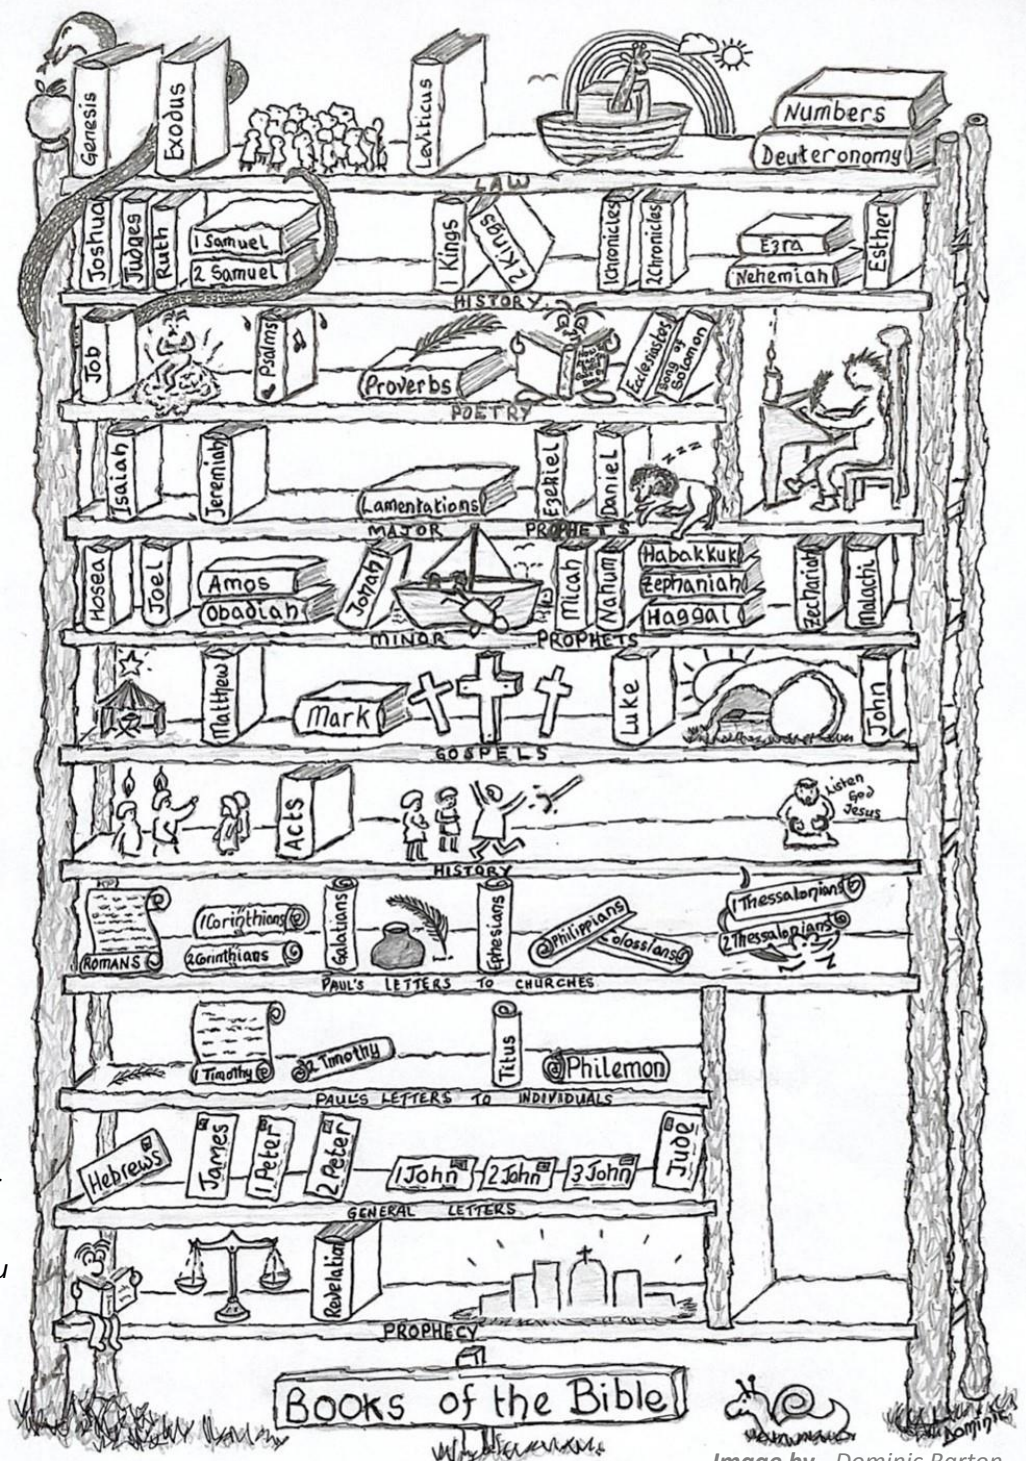 Genesis
Exodus
Leviticus
Numbers
Deuteronomy
LAW
Joshua
Judges
Ruth
1 Samuel
2 Samuel
1 Kings
2 Kings
1 Chronicles
2 Chronicles
Ezra
Nehemiah
Esther
HISTORY
Job
Psalms
Proverbs
Ecclesiastes
Song of Solomon
POETRY
Isaiah
Jeremiah
Lamentations
Ezekiel
Daniel
zzz
MAJOR PROPHETS
Hosea
Joel
Amos
Obadiah
Jonah
Micah
Nahum
Habakkuk
Zephaniah
Haggai
Zechariah
Malachi
MINOR PROPHETS
Matthew
Mark
Luke
John
GOSPELS
Acts
Listen
God
Jesus
HISTORY
ROMANS
1Corinthians
2Corinthians
Galatians
Ephesians
Philippians
Colossians
1Thessalonians
2Thessalonians
PAUL'S LETTERS TO CHURCHES
1 Timothy
2 Timothy
Titus
Philemon
PAUL'S LETTERS TO INDIVIDUALS
Hebrews
James
1 Peter
2 Peter
1 John
2 John
3 John
Jude
GENERAL LETTERS
Revelation
PROPHECY
BOOKS of the Bible
Dominic
Image by - Dominic Barton